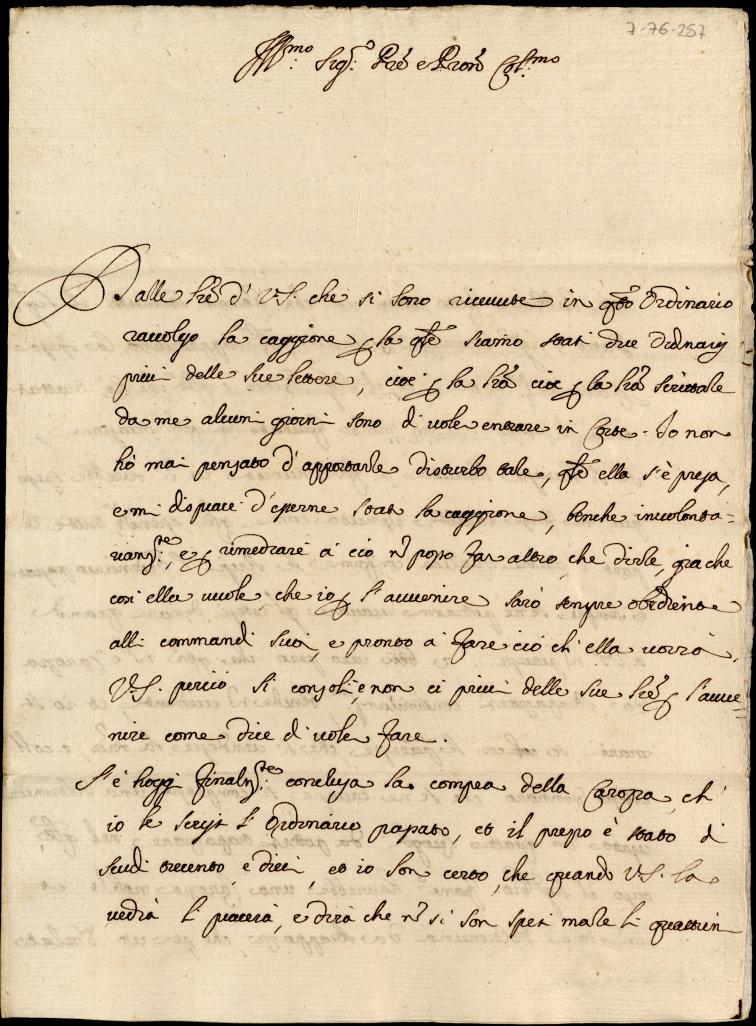 7-76-257
Ill.mo Sig.r Pré e Pron Col.mo
Dalle lre d' V.S. che si sono riceuute in qto Ordinario
raccolgo la caggione p la qle siamo stati due Ordinarij
priui delle sue lettere, cioè p la lra cioè p la lra scrittale
da me alcuni giorni sono di uole entrare in Corte. Io non
hò mai pensato d'apportarle disturbo tale, qle ella s'è presa,
e mi dispiace d'esserne stato la caggione, benche inuolonta-
riam.te, e p rimediare à ciò nō posso far altro, che dirle, gia che
così ella uuole, che io p l'auuenire sarò sempre obediente
alli commandi suoi, e pronto à fare ciò ch'ella uorrà.
V.S. perciò si consoli, e non ci priui delle sue lre p l'auue-
nire come dice di uole fare.
S'è hoggi finalm.te conclusa la compra della Carozza, ch'
io le scrissi l'Ordinario passato, et il prezzo è stato di
scudi trecento, e dieci, et io son certo, che quando V.S. la
uedrà li piacerà, e dirà che nō si son spesi male li quattrin